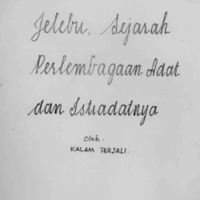 Jelebu, Sejarah
Perlembagaan Adat
dan Istiadatnya
OLEH.
KALAM TERJALI.